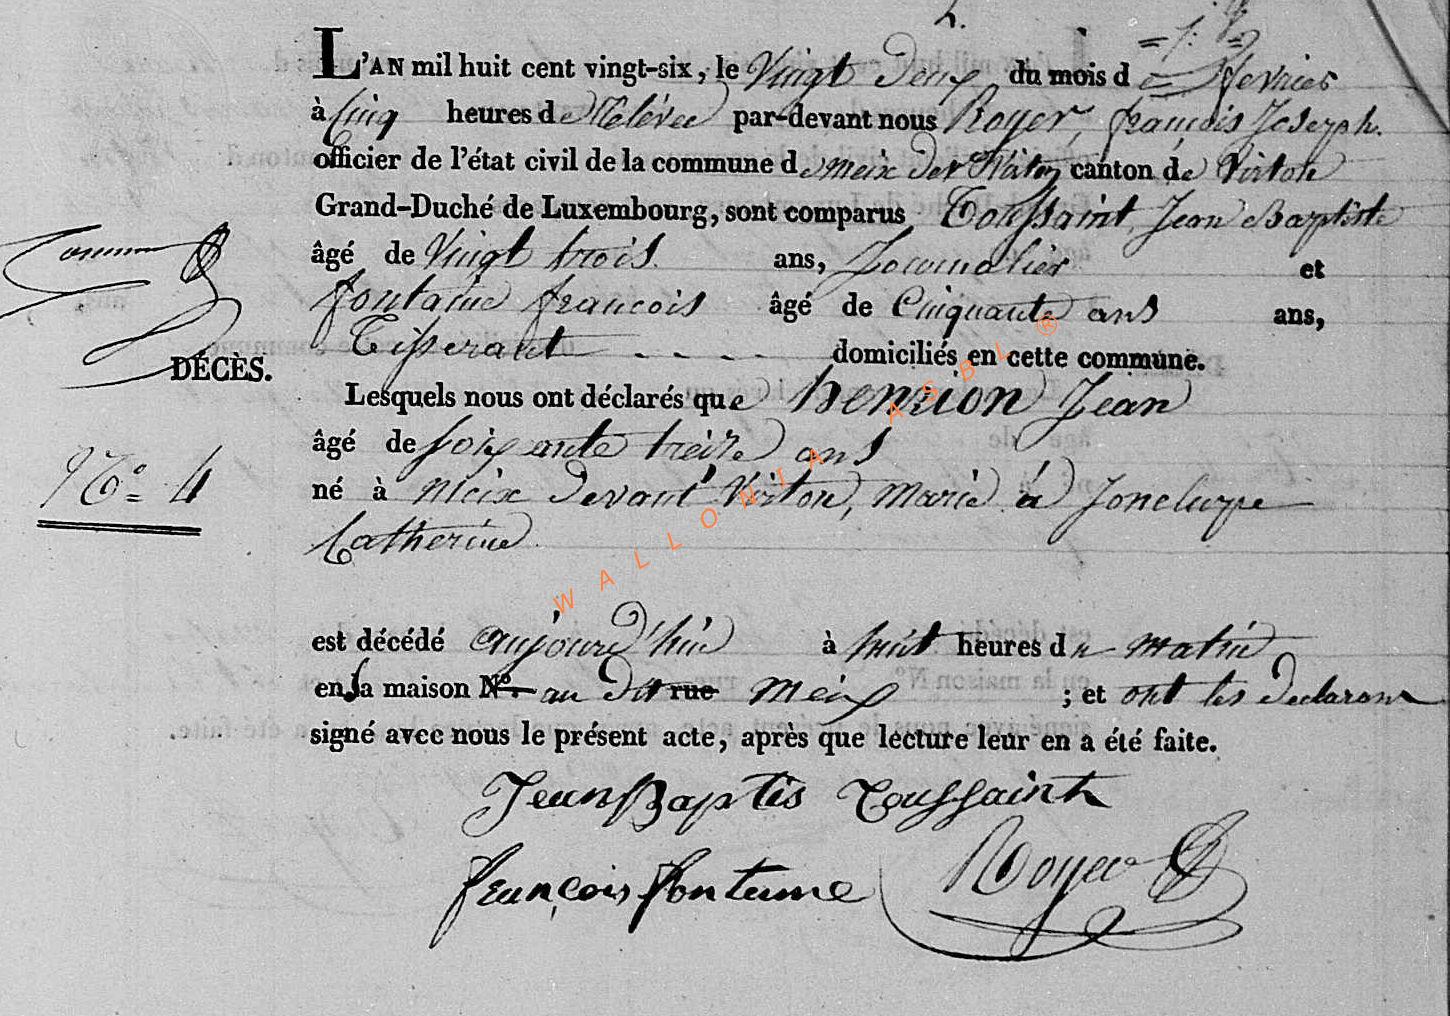 2.
L'AN mil huit cent vingt-six, le Vingt Deux du mois de fevrier
à Cinq heures de Relevée par-devant nous Royer, françois Joseph.
officier de l'état civil de la commune de meix devt Virton canton de Virton
Grand-Duché de Luxembourg, sont comparus Toussaint, Jean Baptiste
âgé de Vingt trois. ans, Journalier et
fontaine francois âgé de Cinquante ans ans,
Tisserant - - - - domiciliés en cette commune.
DÉCÈS.
Lesquels nous ont déclarés que henrion Jean
âgé de soixante treize ans
N° 4
né à Meix Devant Virton, Marié à Jonclurpe
Catherine
est décédé aujourd'hui à huit heures du matin
en sa maison N°. au dit rue Meix ; et ont les declarans
signé avec nous le présent acte, après que lecture leur en a été faite.
Jean Baptis Toussaint
françois fontaine Royer
WALLONIA ASBL ®